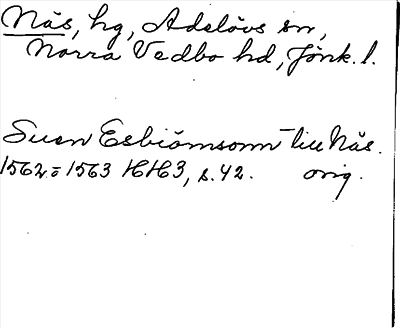 Näs, hg, Adelövs sn,
Norra Vedbo hd, Jönk. l.
Suen Esbiörnsonn till Näs.
1562 = 1563 HH3, s. 42. orig.